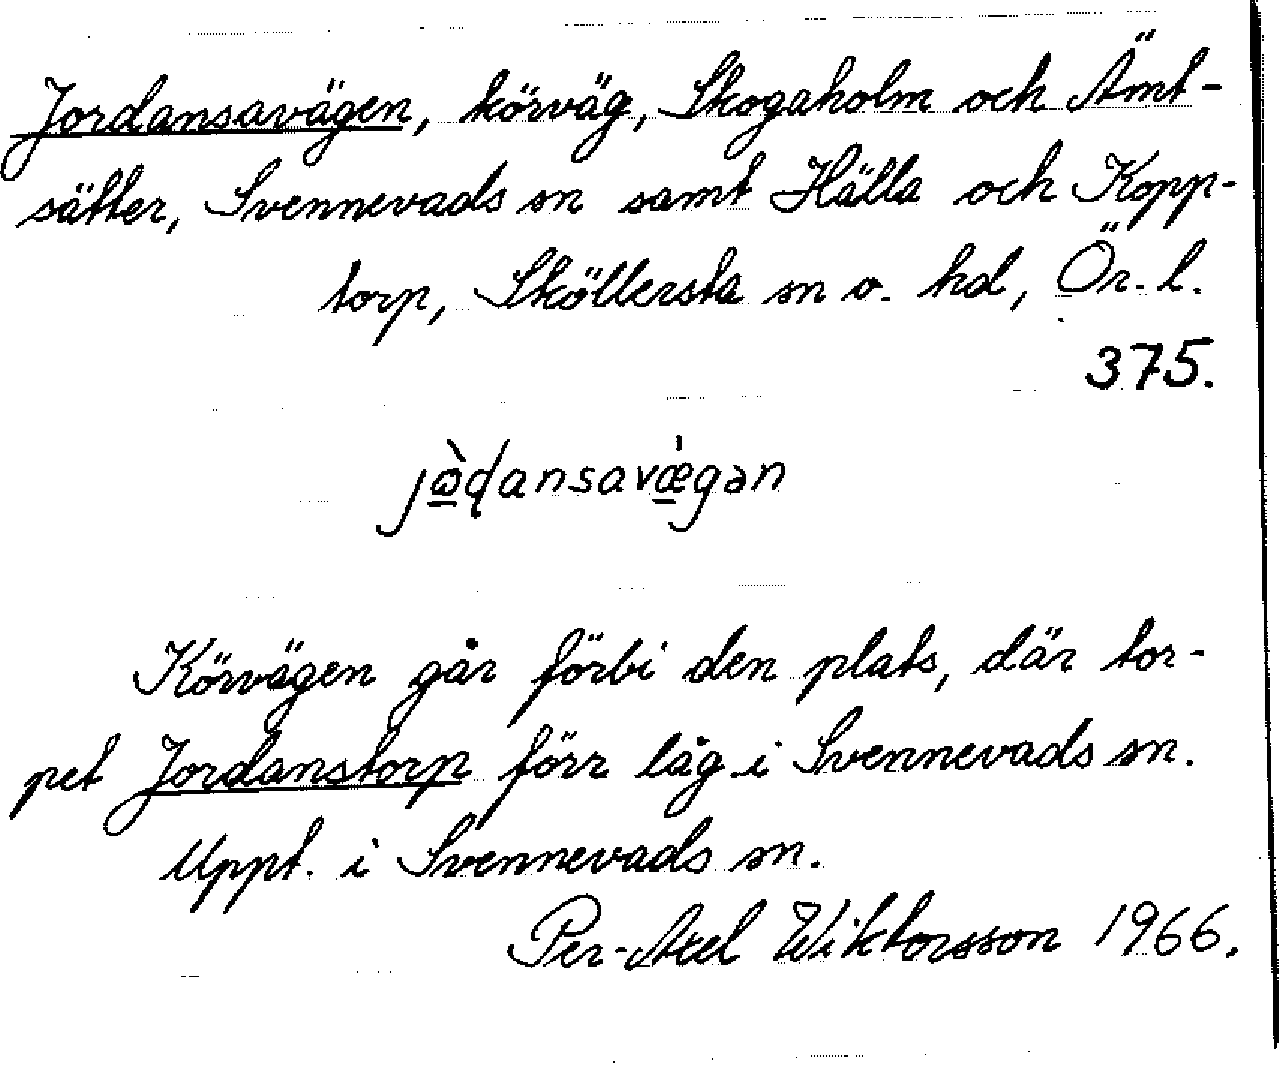 Jordansavägen, körväg, Skogaholm och Ämt-
sätter, Svennevads sn samt Hälla och Kopp-
torp, Sköllersta sn o. hd, Ör. l.
375.
Körvägen går förbi den plats, där tor-
pet Jordanstorp förr låg i Svennevads sn.
Uppt. i Svennevads sn.
Per-Axel Wiktorsson 1966.